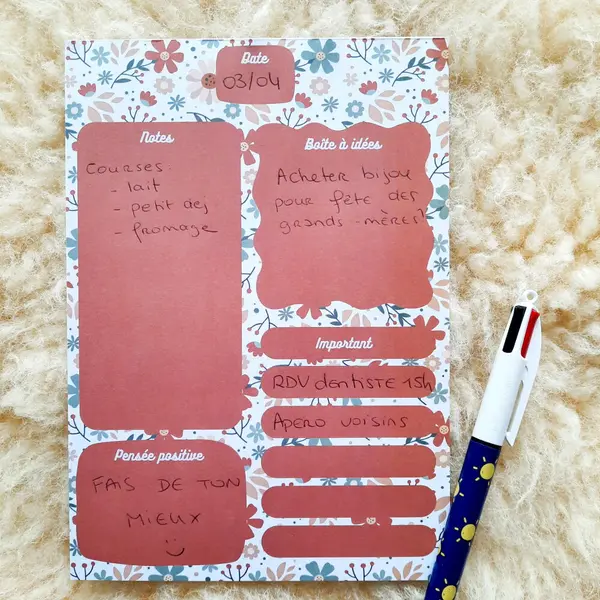 Date
03/04
Notes
Courses:
- lait
- petit dej
- fromage
Boîte à idées
Acheter bijou
pour fête des
grands-mères!
Important
RDV dentiste 15h
Apero voisins
Pensée positive
FAIS DE TON
MIEUX